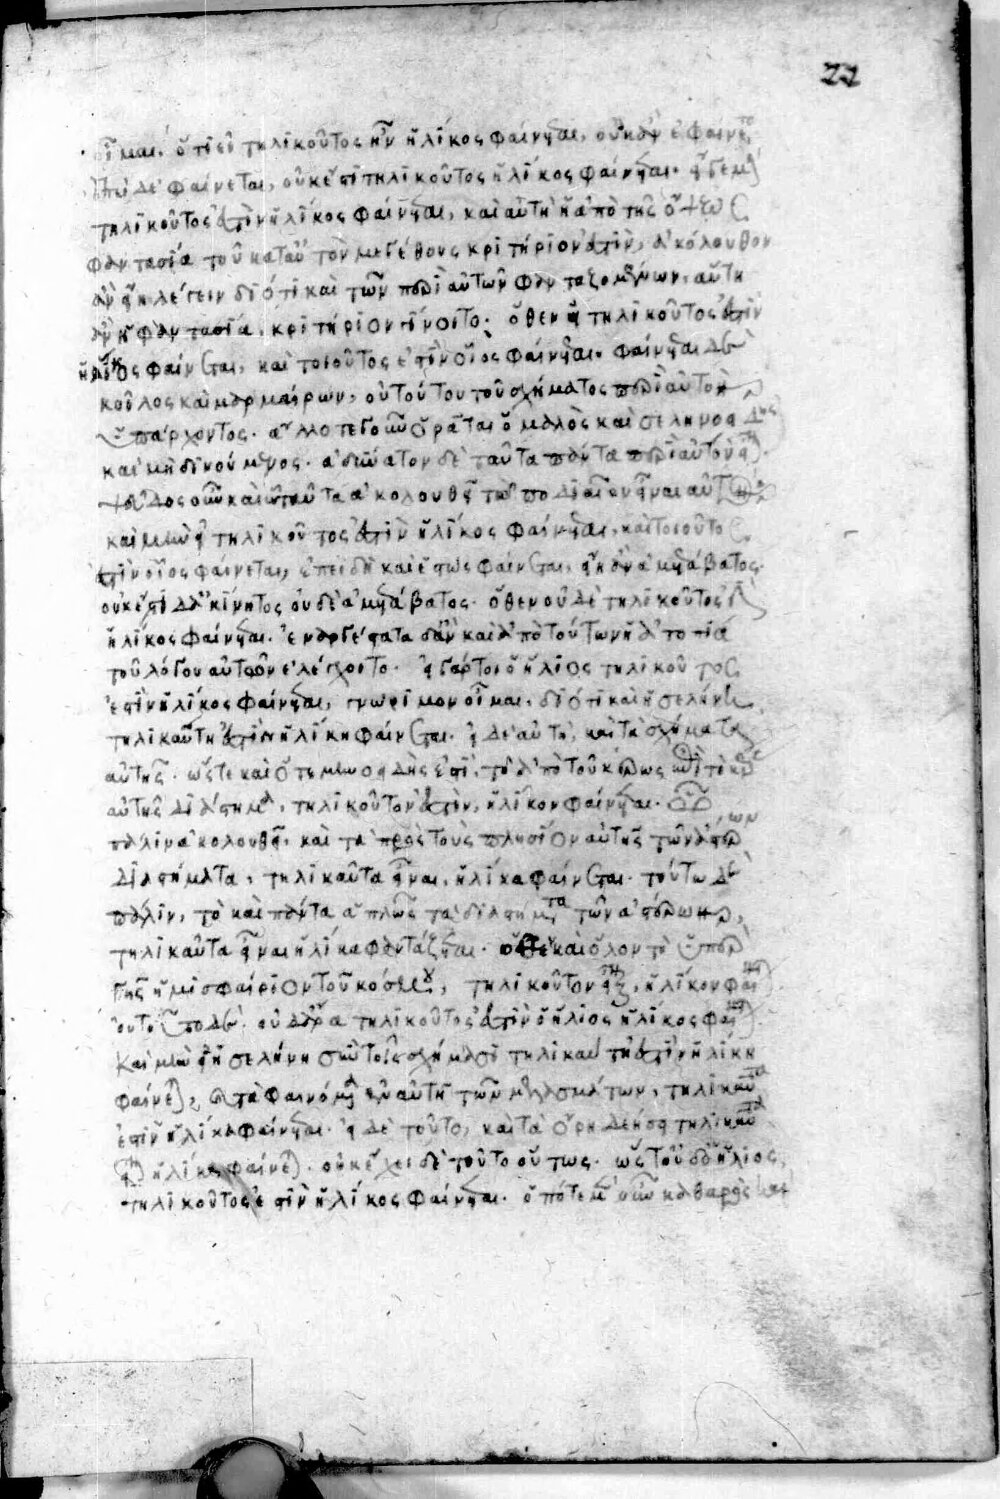 22
οἶμαι, ὅτι εἰ τηλικοῦτος ἦν ἡλίκος φαίνεται, οὐκ ἂν ἐφαίνετο
ἐπεὶ δὲ φαίνεται, οὐκ ἔστι τηλικοῦτος ἡλίκος φαίνεται. εἰ δὲ μὴ
τηλικοῦτος ἐστὶν ἡλίκος φαίνεται, καὶ αὐτὴ ἡ ἀπὸ τῆς ὄψεως
φαντασία τοῦ κατ' αὐτὸν μεγέθους κριτήριον ἐστὶν, ἀκόλουθον
ἂν εἴη λέγειν διότι καὶ τῶν περὶ αὐτῶν φανταζομένων, αὕτη
ἂν ἡ φαντασία, κριτήριον γίνοιτο. ὅθεν εἰ τηλικοῦτος ἐστὶν
ἡλίκος φαίνεται, καὶ τοιοῦτος ἐστὶν οἷος φαίνεται. φαίνεται δὲ
κοῖλος καὶ μαρμαίρων, οὐ τούτου τοῦ σχήματος περὶ αὐτὸν
ὑπάρχοντος. ἄλλοτέ γε μὴν ὁρᾶται ὁμαλὸς καὶ σεληνοειδὴς
καὶ μὴ δινούμενος. ἀδύνατον δὲ ταῦτα πάντα περὶ αὐτὸν εἶναι.
ψεῦδος οὖν καὶ ταῦτα ἀκολουθεῖ τῷ
καὶ μὴν εἰ τηλικοῦτος ἐστὶν ἡλίκος φαίνεται, καὶ τοιοῦτος
ἐστὶν οἷος φαίνεται, ἐπειδὴ καὶ ἑστὼς φαίνεται, εἴη ἂν ἀμετάβατος.
οὐκ ἔστι δὲ ἀκίνητος οὐδὲ ἀμετάβατος. ὅθεν οὐδὲ τηλικοῦτος ἐστὶν
ἡλίκος φαίνεται. ἐναργέστατα δ' ἂν καὶ ἀπὸ τούτων ἡ ἀτοπία
τοῦ λόγου αὐτῶν ἐλέγχοιτο. εἰ γάρ τοι ὁ ἥλιος τηλικοῦτος
ἐστὶν ἡλίκος φαίνεται, γνώριμον οἶμαι, διότι καὶ ἡ σελήνη
τηλικαύτη ἐστὶν ἡλίκη φαίνεται. εἰ δὲ αὐτὴ, καὶ τὰ σχήματα
αὐτῆς. ὥστε καὶ ὅτε μηνοειδής ἐστι, τὸ ἀπὸ τοῦ κέρως ἐπὶ τὸ κέρας
αὐτῆς διάστημα, τηλικοῦτον ἐστὶν, ἡλίκον φαίνεται.
πάλιν ἀκολουθεῖ, καὶ τὰ πρὸς τοὺς πλησίον αὐτῆς τῶν ἀστέρων
διαστήματα, τηλικαῦτα εἶναι, ἡλίκα φαίνεται. τούτῳ δὲ
πάλιν, τὸ καὶ πάντα ἁπλῶς τὰ διαστήματα τῶν ἀστέρων,
τηλικαῦτα εἶναι ἡλίκα φαντάζεται. ὥστε καὶ ὅλον τὸ ὑπὲρ
γῆς ἡμισφαίριον τοῦ κόσμου, τηλικοῦτον εἶναι, ἡλίκον φαίνεται.
οὐ τοῦτο δὲ. οὐδ' ἄρα τηλικοῦτος ἐστὶν ὁ ἥλιος ἡλίκος φαίνεται.
καὶ μὴν εἰ ἡ σελήνη σὺν τοῖς σχήμασι τηλικαύτη ἐστὶν ἡλίκη
φαίνεται, καὶ τὰ φαινόμενα ἐν αὐτῇ τῶν μελασμάτων, τηλικαῦτα
ἐστὶν ἡλίκα φαίνεται. εἰ δὲ τοῦτο, καὶ τὰ ὄρη δεήσει τηλικαῦτα
εἶναι ἡλίκα φαίνεται. οὐκ ἔχει δὲ τοῦτο οὕτως. ὥστ' οὐδ' ὁ ἥλιος,
τηλικοῦτος ἐστὶν ἡλίκος φαίνεται. ὁπότε μὲν οὖν καθαρὸς